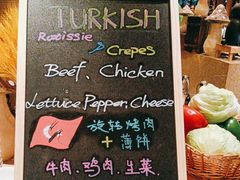 TURKISH
Roaissie
Crepes
Beef、Chicken
Lettuce Pepper, Cheese
旋转烤肉
+薄饼
牛肉.鸡肉.生菜.